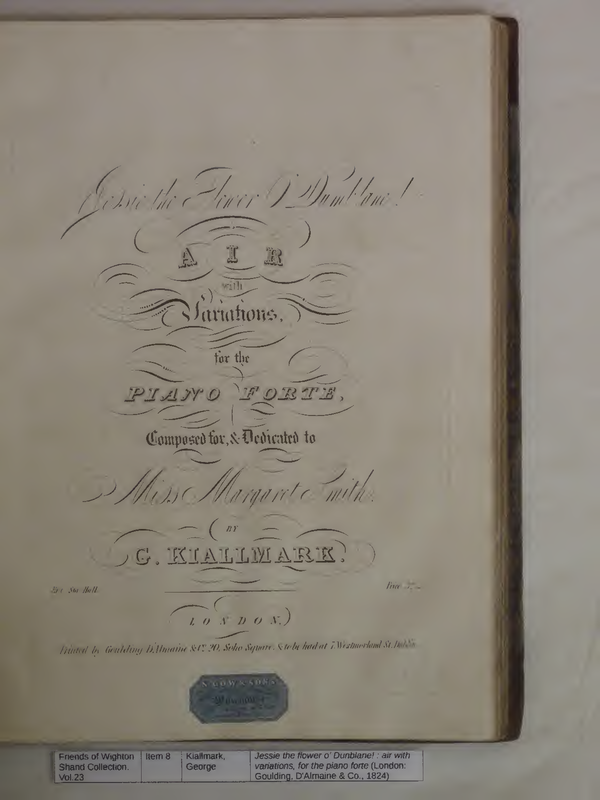 Jessie the Flower O' Dumblane!
AIR
with
Variations,
for the
PIANO FORTE,
Composed for, & Dedicated to
Miss Margaret Smith.
BY
G. KIALLMARK.
Ent. Sta. Hall.
Price
LONDON,
Printed by Goulding D'Almaine & Co. 20, Soho Square, & to be had at 7 Westmorland St. Dublin
N. GOW & SON'S
Friends of Wighton
Shand Collection.
Vol.23
Item 8
Kiallmark,
George
Jessie the flower o' Dunblane! : air with
variations, for the piano forte (London:
Goulding, D'Almaine & Co., 1824)